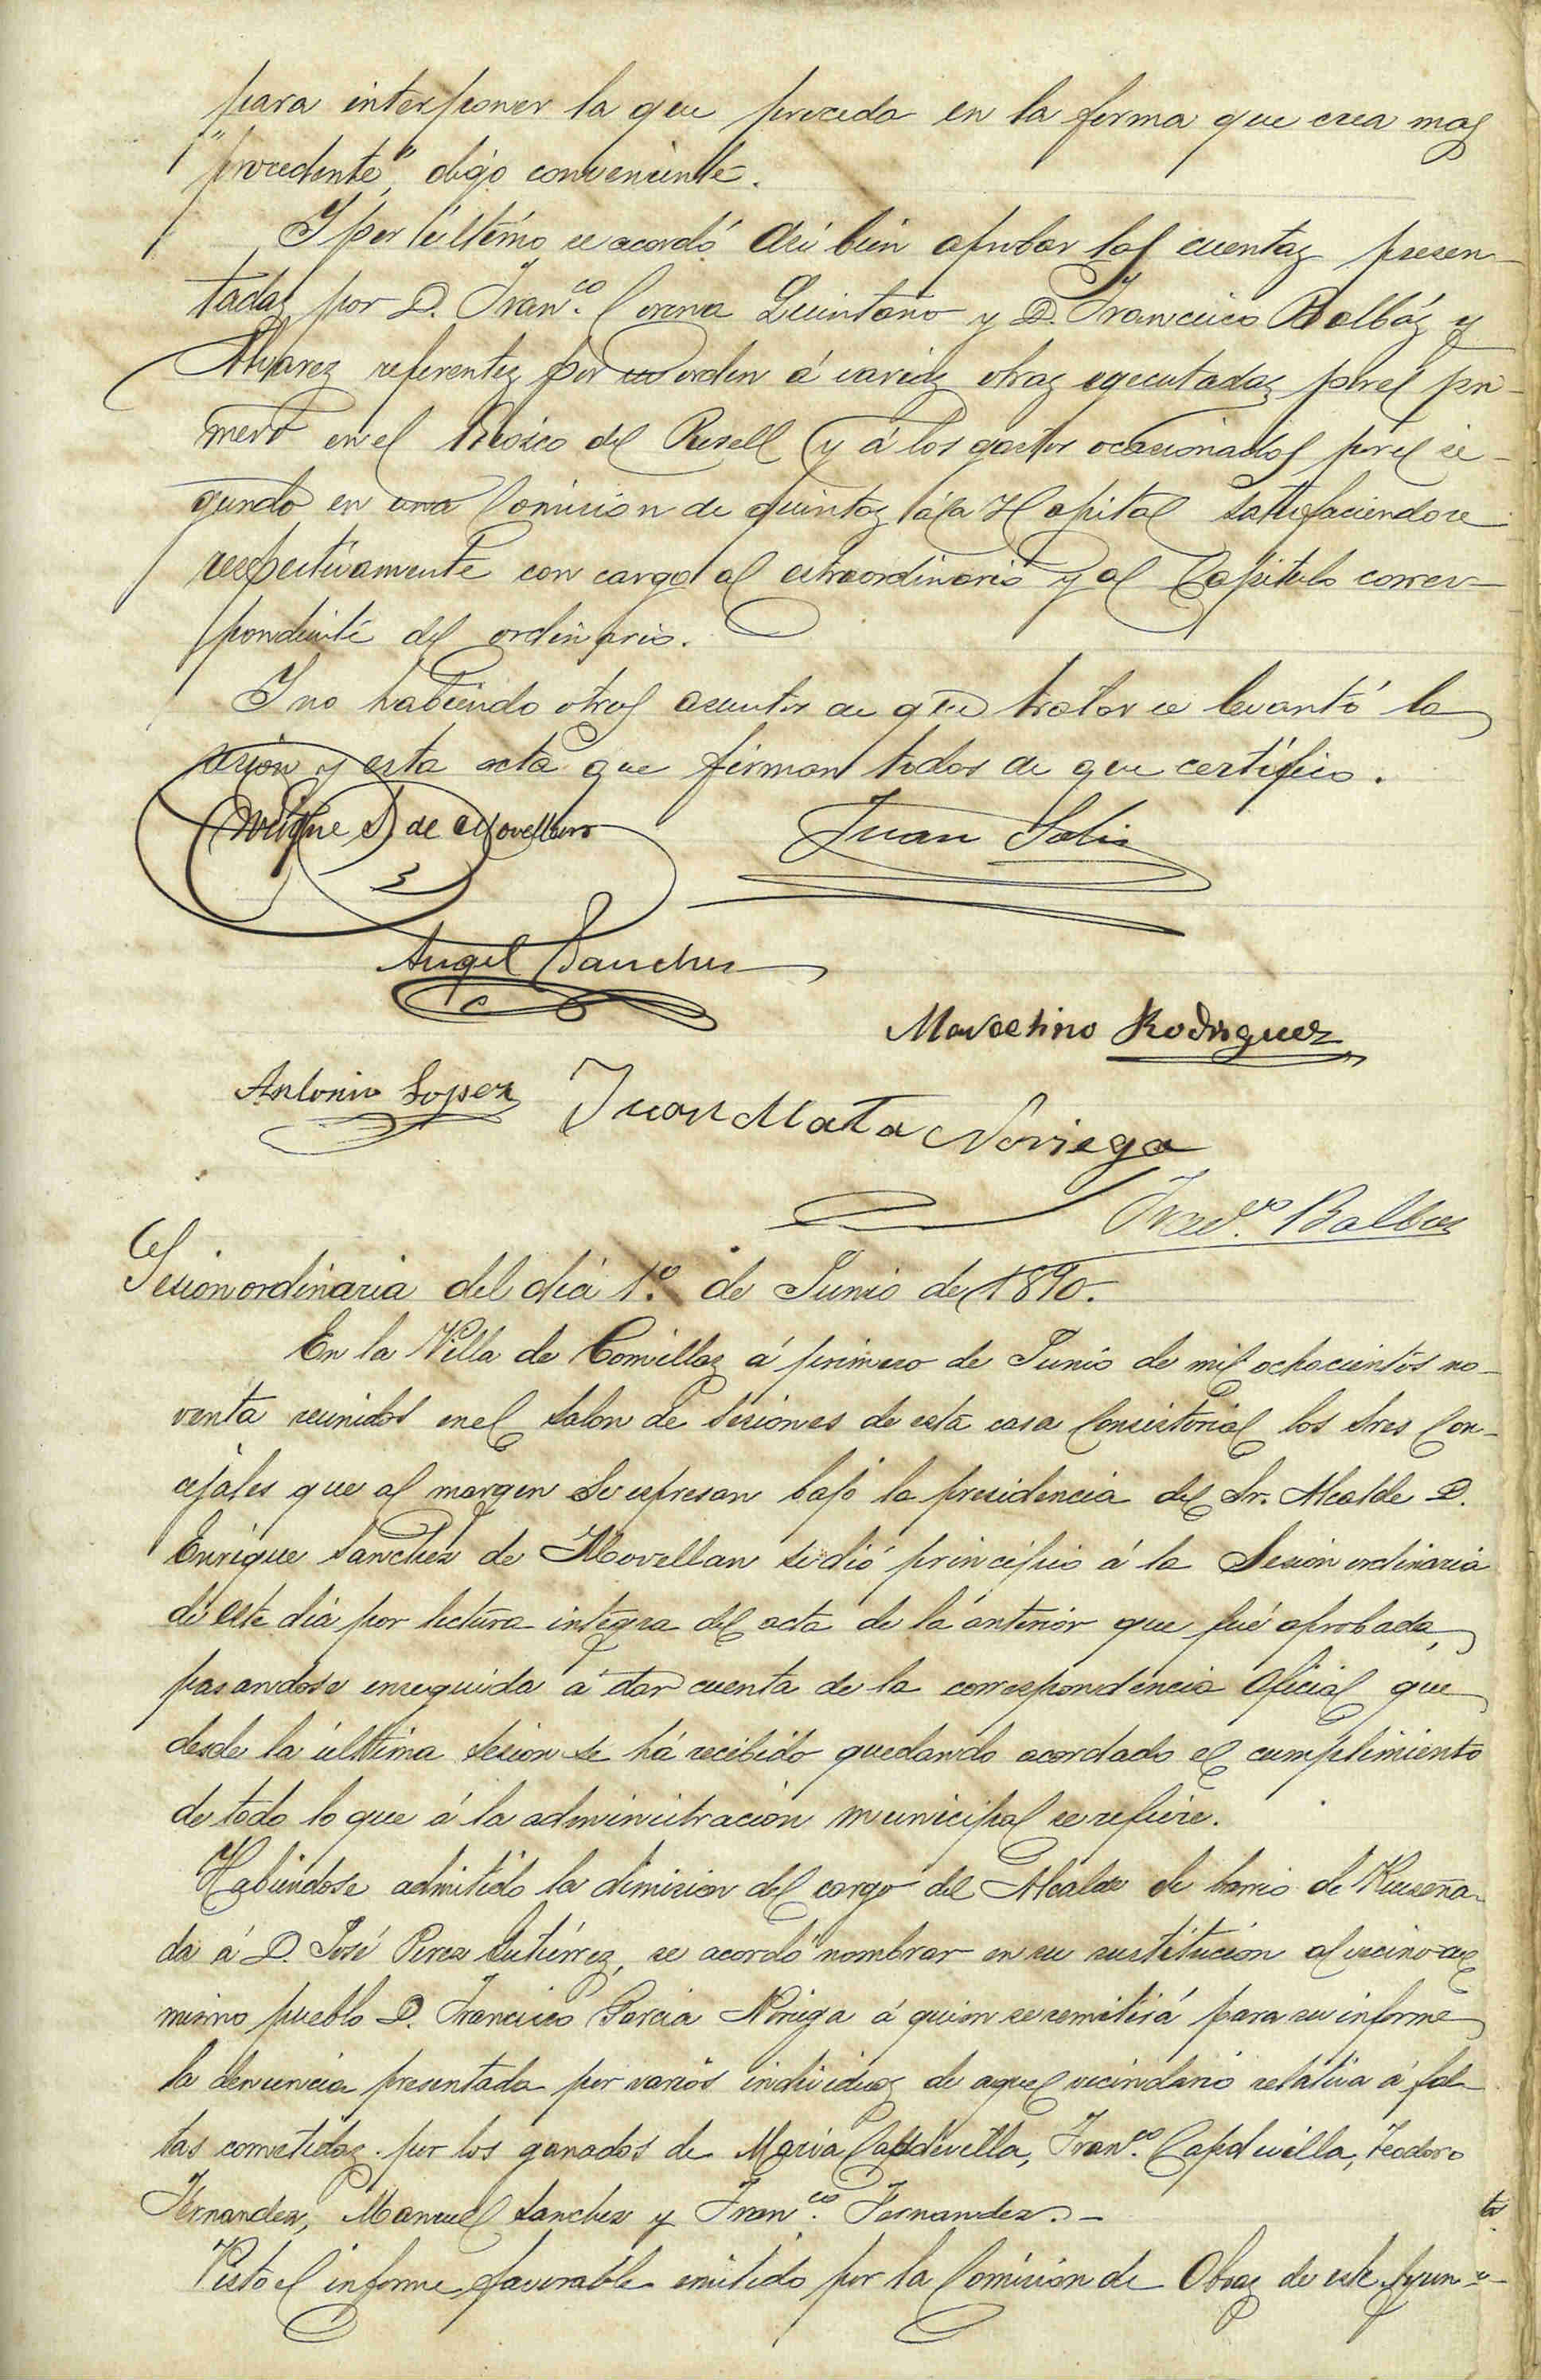 para interponer la que proceda en la forma que crea mas
"procedente", digo conveniente.
Y por último se acordó asi bien aprobar las cuentas presen-
tadas por D. Fran.co Corona Quintana y D. Francisco Balbás y
Alvarez referentes por su orden á varias obras egecutadas por el pri-
mero en el Kiosco del Resell y á los gastos ocasionados por el se-
gundo en una Comision de quintas á la Capital satisfaciendose
respectivamente con cargo al estraordinario y al Capitulo corres-
pondiente del ordinario.
Y no habiendo otros asuntos de que tratar se levantó la
sesion y esta acta que firman todos de que certifico.
Enrique S. de Movellan
Juan Solis
Angel Sanchez
Marcelino Rodriguez
Antonio Lopez
Juan Mata Noriega
Fran.co Balbas
Sesion ordinaria del dia 1.º de Junio de 1890.
En la Villa de Comillas á primero de Junio de mil ochocientos no-
venta reunidos en el salon de sesiones de esta casa Consistorial los Sres Con-
cejales que al margen se espresan bajo la presidencia del Sr. Alcalde D.
Enrique Sanchez de Movellan se dió principio á la Sesion ordinaria
de este dia por lectura integra del acta de la anterior que fué aprobada,
pasandose enseguida á dar cuenta de la correspondencia oficial que
desde la última sesion se há recibido quedando acordado el cumplimiento
de todo lo que á la administracion municipal se refiere.
Habiendose admitido la dimision del cargo del Alcalde de barrio de Ruiseña-
da á D. José Perez Gutiérrez, se acordó nombrar en su sustitucion al vecino del
mismo pueblo D. Francisco Garcia Noriega á quien se remitirá para su informe
la denuncia presentada por varios individuos de aquel vecindario relativa á fal-
tas cometidas por los ganados de Maria Capdevilla, Fran.co Capdevilla, Teodoro
Fernandez, Manuel Sanchez y Fran.co Fernandez.-
Visto el informe favorable emitido por la Comision de Obras de este Ayun-